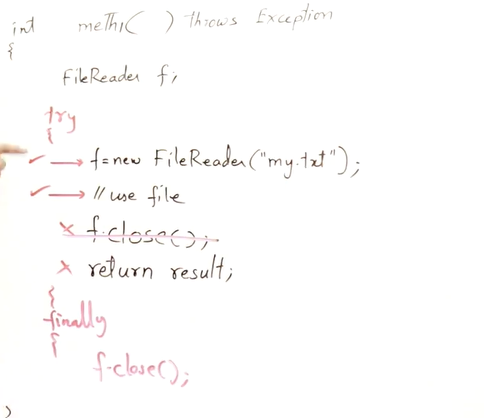 int meth1( ) throws Exception
{
FileReader f;
try
{
f=new FileReader("my.txt");
// use file
f.close();
return result;
{
finally
{
f.close();
}